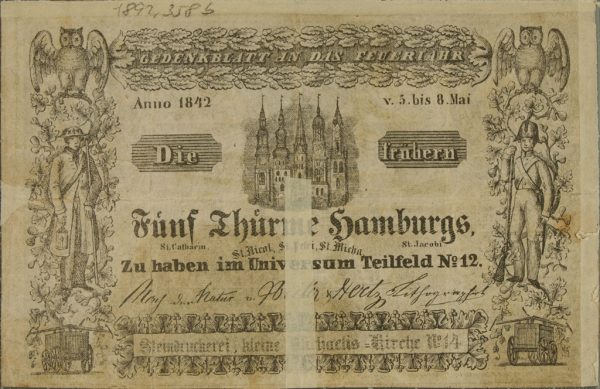 1892,358 b
GEDENKBLATT AN DAS FEUERJAHR
Anno 1842 v. 5. bis 8. Mai
Die frühern
Fünf Thürme Hamburgs,
St. Catharin. St. Nicol, St. Petri, St. Micha. St. Jacobi
Zu haben im Universum Teilfeld No 12.
Nach der Natur v. & Hertz Lithographirt
Steindruckerei, kleine Michaelis-Kirche No 14